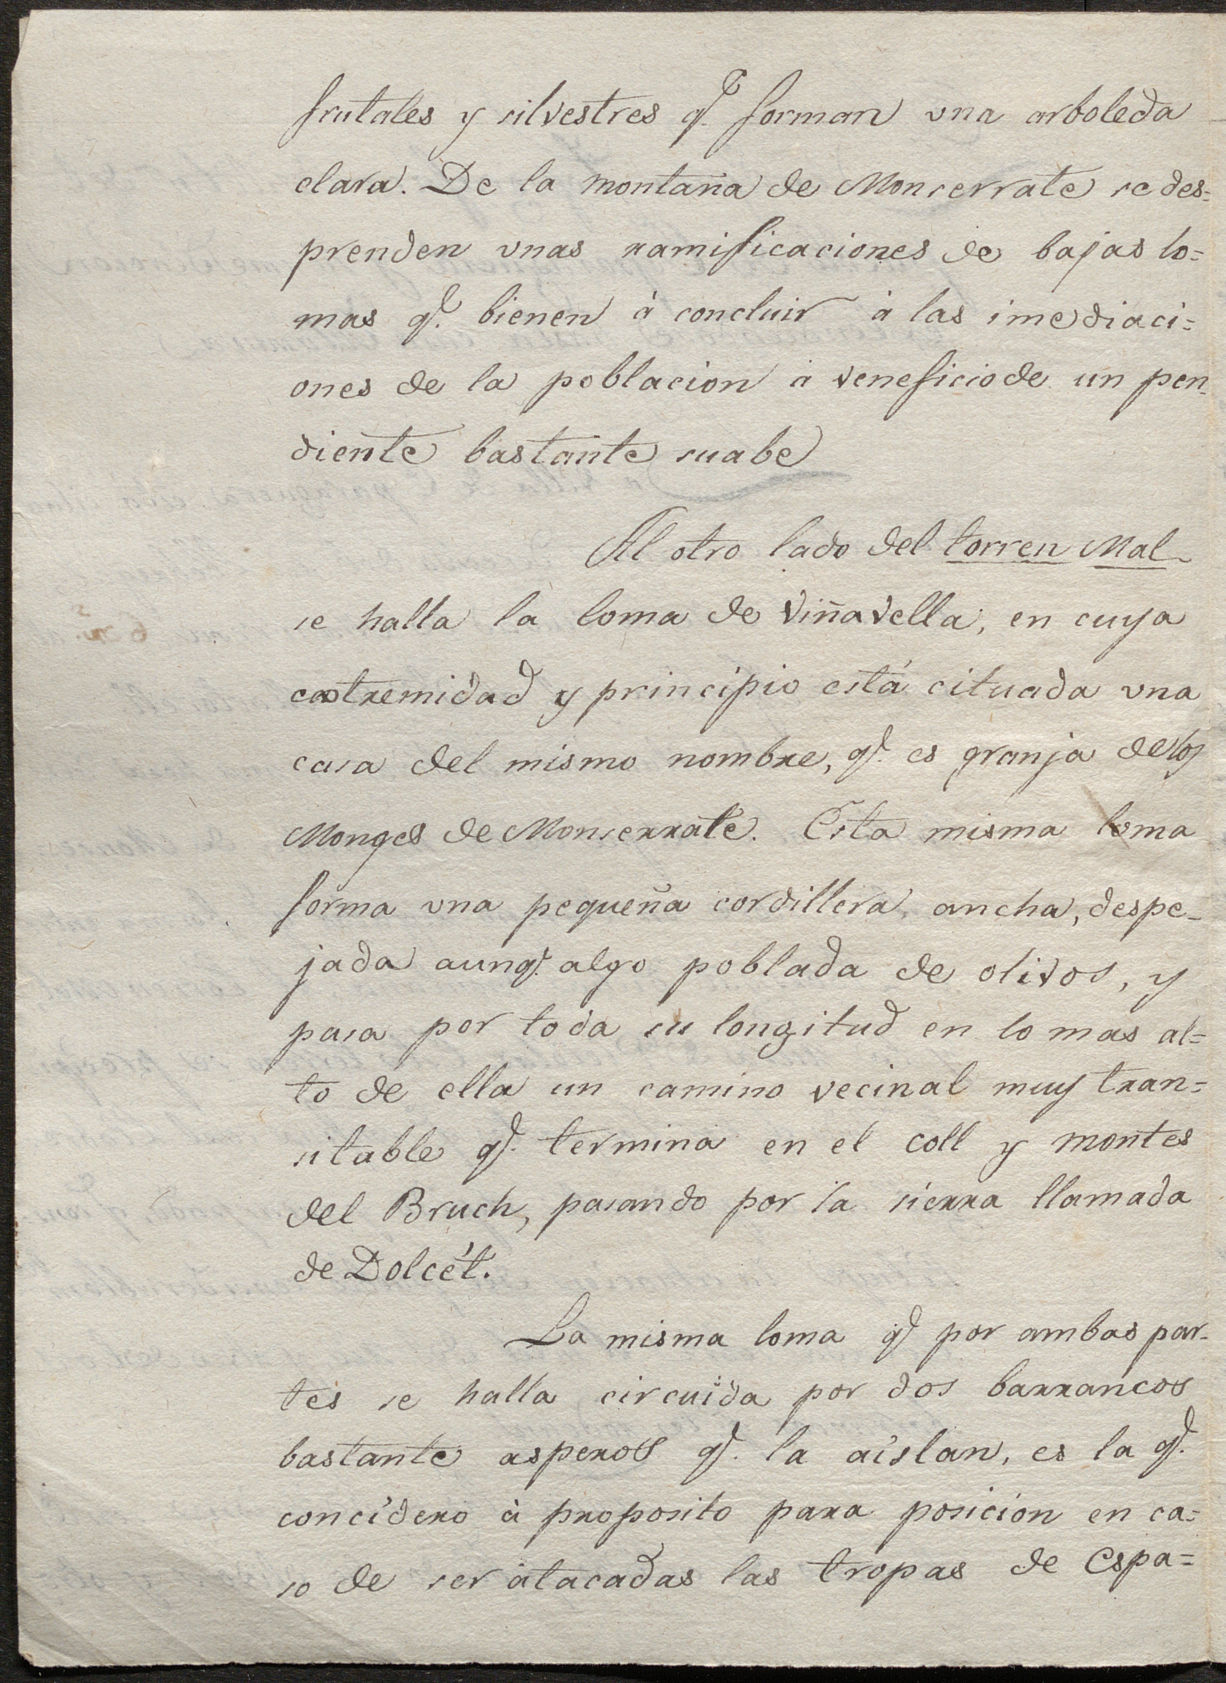 frutales y silvestres q.e forman una arboleda
clara. De la montaña de Monserrate se des=
prenden unas ramificaciones de bajas lo=
mas q.e bienen à concluir à las imediaci=
ones de la poblacion à veneficio de un pen
diente bastante suabe
Al otro lado del torren Mal
se halla la loma de Viñavella, en cuya
extremidad y principio està cituada una
casa del mismo nombre, q.e es granja de los
Monges de Monserrate. Esta misma loma
forma una pequeña cordillera, ancha, despe-
jada aunq.e algo poblada de olivos, y
pasa por toda su longitud en lo mas al=
to de ella un camino vecinal muy tran=
sitable q.e termina en el coll y montes
del Bruch, pasando por la sierra llamada
de Dolcét.
La misma loma q.e por ambas par-
tes se halla circuida por dos barrancos
bastante asperos q.e la aislan, es la q.e
concidero à proposito para posicion en ca=
so de ser atacadas las tropas de Espa=